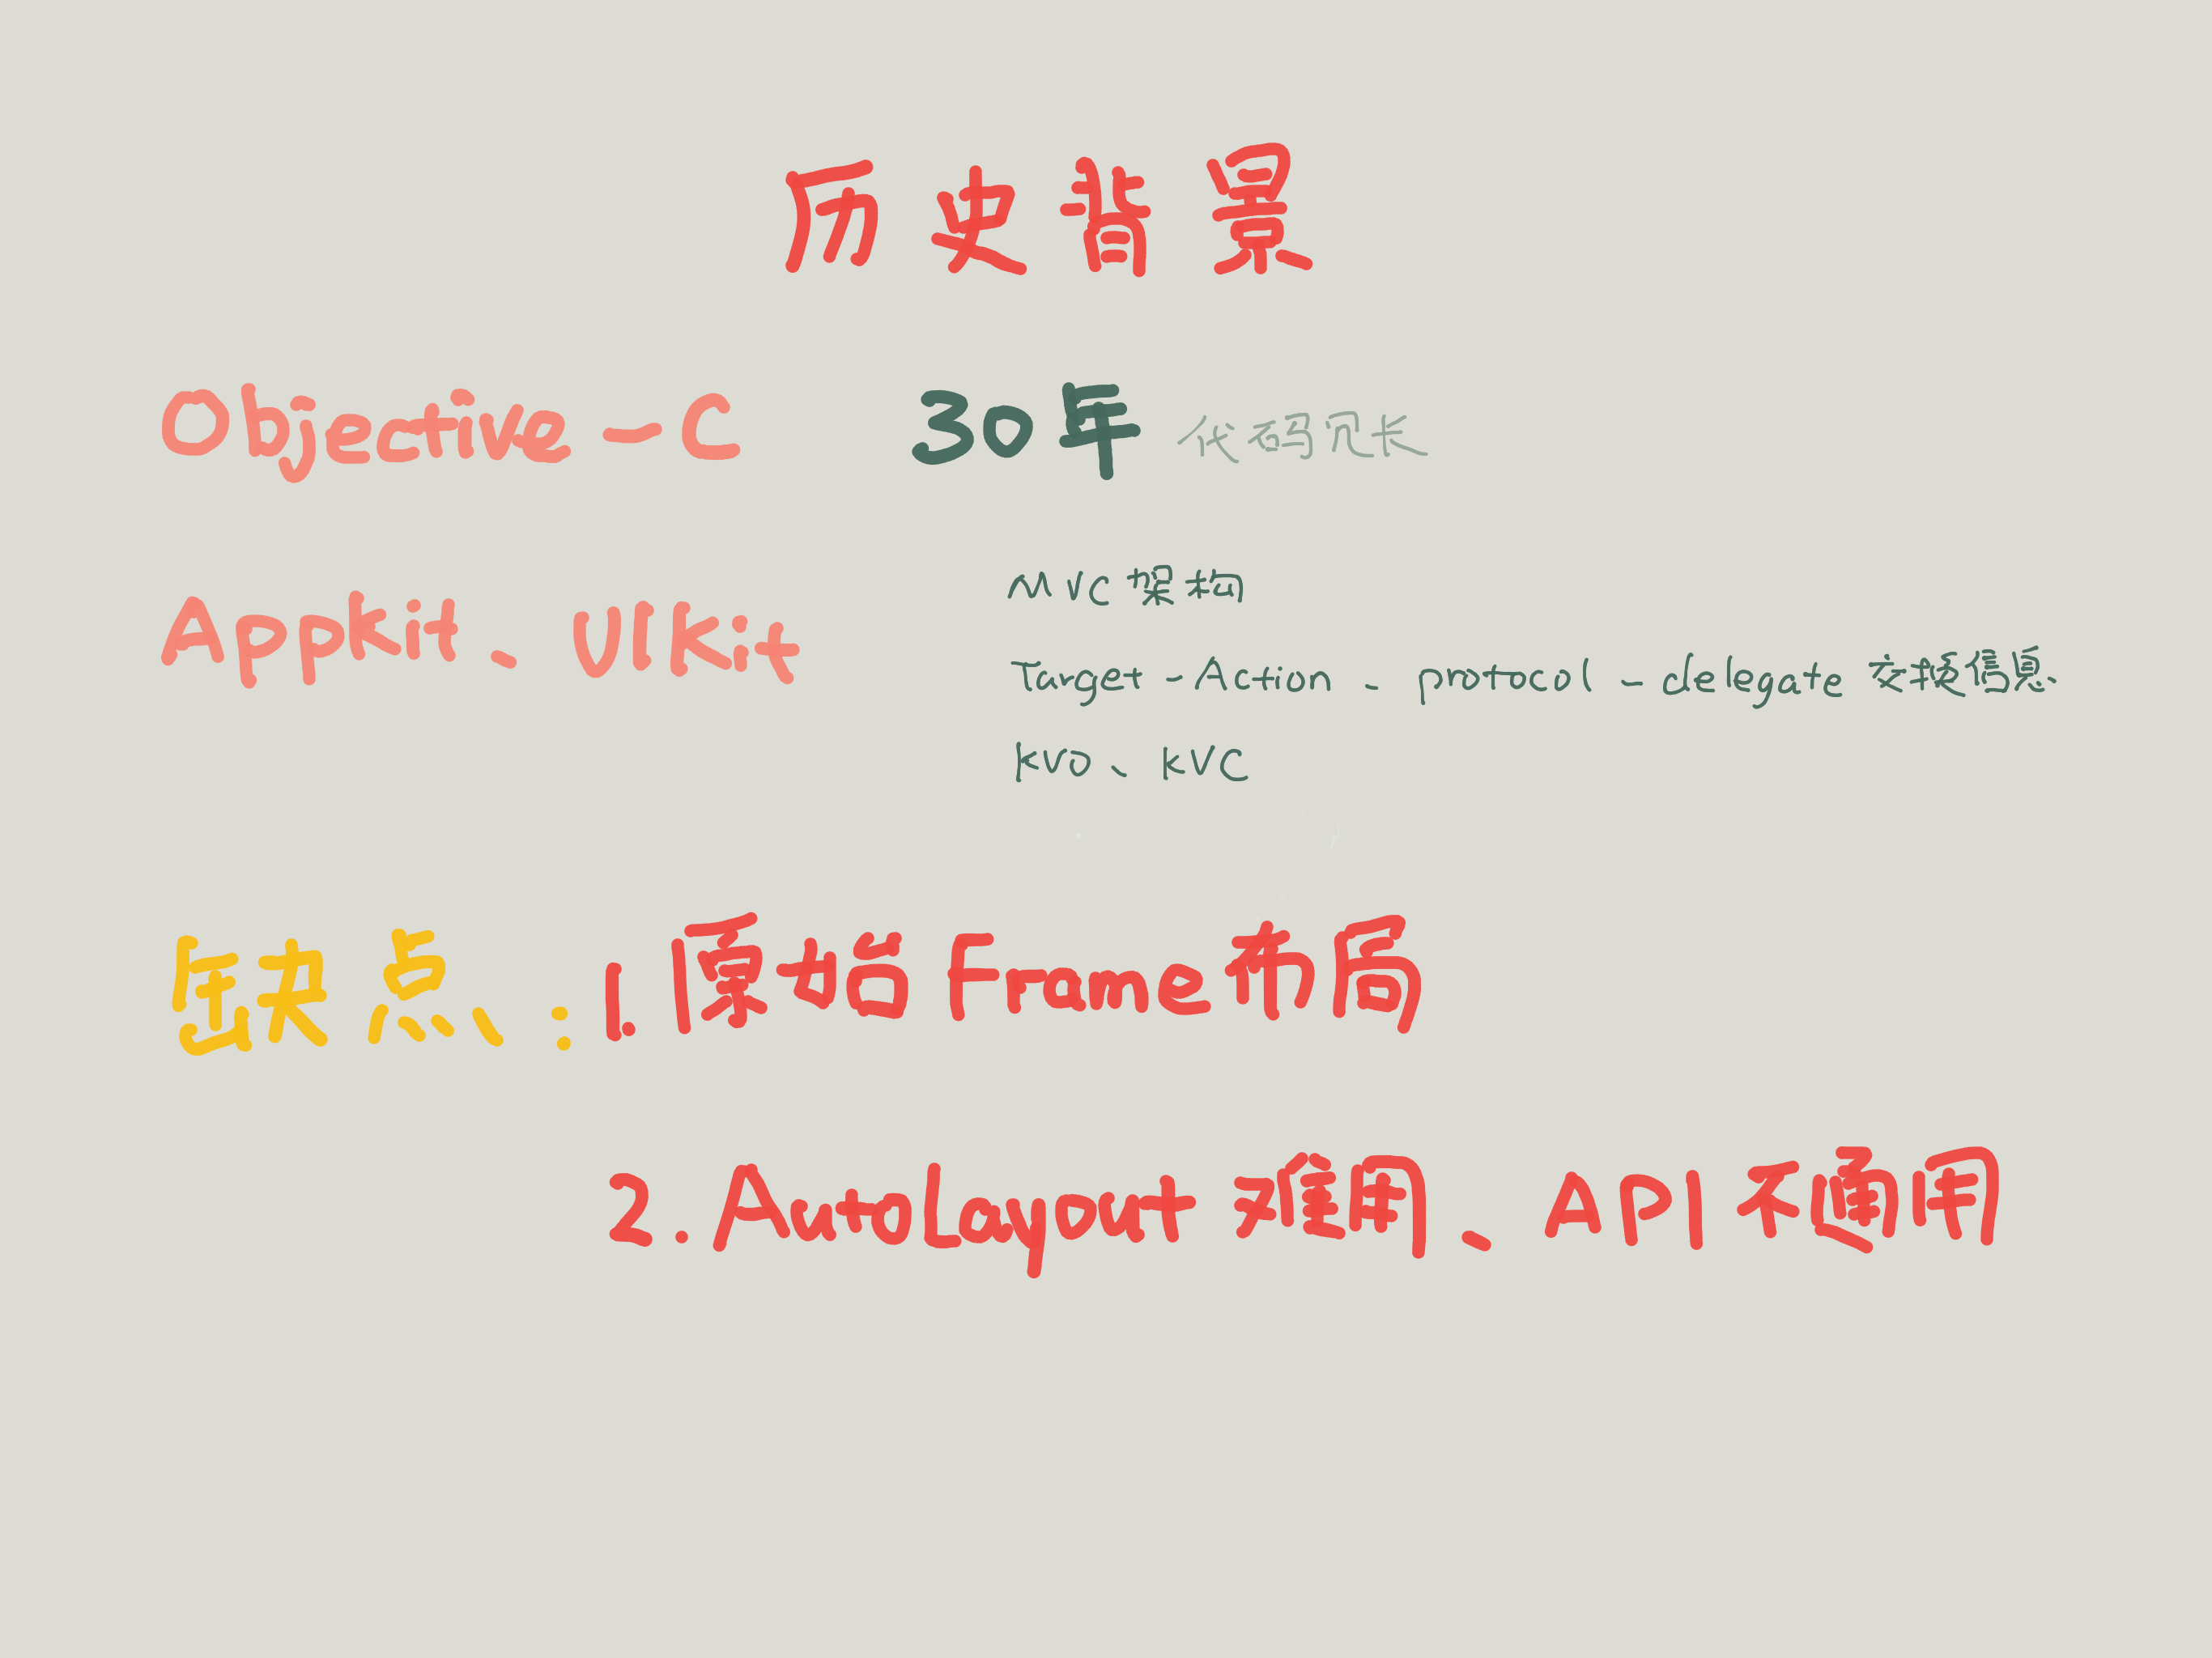 历史背景
Objective-C 30年 代码冗长
Appkit、UIKit
MVC架构
Target-Action、protocol-delegate交换信息
KVO、KVC
缺点:1.原始Frame布局
2.AutoLayout难用、API不通用